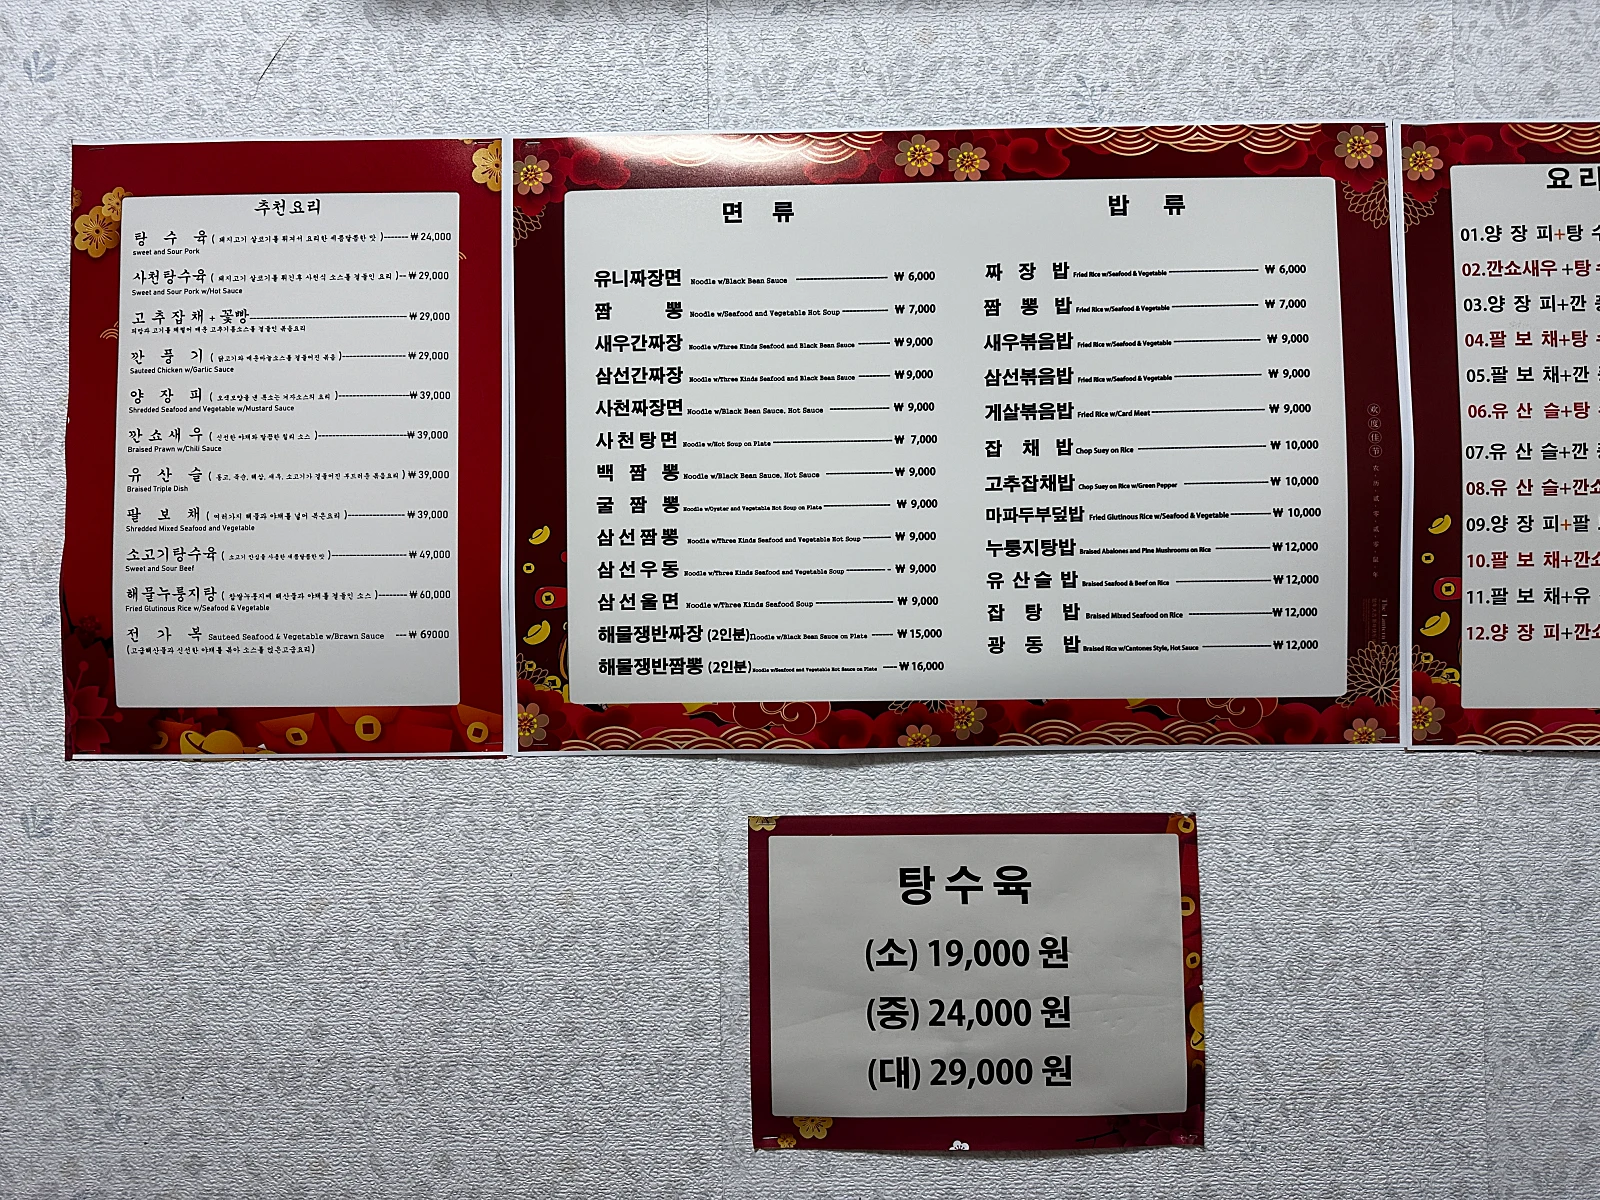 추천요리
탕 수 육 ( 돼지고기 살코기를 튀겨서 요리한 새콤달콤한 맛 )------- ₩ 24,000
sweet and Sour Pork
사천탕수육 ( 돼지고기 살코기를 튀긴후 사천식 소스를 곁들인 요리 )-- ₩ 29,000
Sweet and Sour Pork w/Hot Sauce
고 추 잡 채 + 꽃빵 ₩ 29,000
피망과 고기를 채썰어 매운 고추기름소스를 곁들인 볶음요리
깐 풍 기 ( 닭고기와 매운마늘소스를 곁들여진 볶음 ) ₩ 29,000
Sauteed Chicken w/Garlic Sauce
양 장 피 ( 오색모양을 낸 톡쏘는 겨자소스의 요리 ) ₩ 39,000
Shredded Seafood and Vegetable w/Mustard Sauce
깐 쇼 새 우 ( 신선한 야채와 달콤한 칠리 소스 ) ₩ 39,000
Braised Prawn w/Chili Sauce
유 산 슬 ( 동고, 죽순, 해삼, 새우, 소고기가 곁들여진 부드러운 볶음요리 ) ₩ 39,000
Braised Triple Dish
팔 보 채 ( 여러가지 해물과 야채를 넣어 볶은요리 ) ₩ 39,000
Shredded Mixed Seafood and Vegetable
소고기탕수육 ( 소고기 안심을 사용한 새콤달콤한 맛 ) ₩ 49,000
Sweet and Sour Beef
해물누룽지탕 ( 찹쌀누룽지에 해산물과 야채를 곁들인 소스 ) ₩ 60,000
Fried Glutinous Rice w/Seafood & Vegetable
전 가 복 Sauteed Seafood & Vegetable w/Brawn Sauce --- ₩ 69000
(고급해산물과 신선한 야채를 볶아 소스를 얹은고급요리)
면 류
유니짜장면 Noodle w/Black Bean Sauce ₩ 6,000
짬 뽕 Noodle w/Seafood and Vegetable Hot Soup ₩ 7,000
새우간짜장 Noodle w/Three Kinds Seafood and Black Bean Sauce ₩ 9,000
삼선간짜장 Noodle w/Three Kinds Seafood and Black Bean Sauce ₩ 9,000
사천짜장면 Noodle w/Black Bean Sauce, Hot Sauce ₩ 9,000
사천탕면 Noodle w/Hot Soup on Plate ₩ 7,000
백 짬 뽕 Noodle w/Black Bean Sauce, Hot Sauce ₩ 9,000
굴 짬 뽕 Noodle w/Oyster and Vegetable Hot Soup on Plate ₩ 9,000
삼선짬뽕 Noodle w/Three Kinds Seafood and Vegetable Hot Soup ₩ 9,000
삼선우동 Noodle w/Three Kinds Seafood and Vegetable Soup ₩ 9,000
삼선울면 Noodle w/Three Kinds Seafood Soup ₩ 9,000
해물쟁반짜장 (2인분)Noodle w/Black Bean Sauce on Plate ₩ 15,000
해물쟁반짬뽕 (2인분)Noodle w/Seafood and Vegetable Hot Sauce on Plate ₩ 16,000
밥 류
짜 장 밥 Fried Rice w/Seafood & Vegetable ₩ 6,000
짬 뽕 밥 Fried Rice w/Seafood & Vegetable ₩ 7,000
새우볶음밥 Fried Rice w/Seafood & Vegetable ₩ 9,000
삼선볶음밥 Fried Rice w/Seafood & Vegetable ₩ 9,000
게살볶음밥 Fried Rice w/Card Meat ₩ 9,000
잡 채 밥 Chop Suey on Rice ₩ 10,000
고추잡채밥 Chop Suey on Rice w/Green Pepper ₩ 10,000
마파두부덮밥 Fried Glutinous Rice w/Seafood & Vegetable ₩ 10,000
누룽지탕밥 Braised Abalones and Pine Mushrooms on Rice ₩ 12,000
유 산 슬 밥 Braised Seafood & Beef on Rice ₩ 12,000
잡 탕 밥 Braised Mixed Seafood on Rice ₩ 12,000
광 동 밥 Braised Rice w/Cantones Style, Hot Sauce ₩ 12,000
欢度佳节
요리
01.양 장 피+탕 수
02.깐쇼새우 +탕
03.양 장 피+깐
04.팔 보 채+탕
05.팔 보 채+깐
06.유 산 슬+탕
07.유 산 슬+깐
08.유 산 슬+깐쇼
09.양 장 피+팔
10.팔 보 채+깐쇼
11.팔 보 채+유
12.양 장 피+깐쇼
탕수육
(소) 19,000 원
(중) 24,000 원
(대) 29,000 원